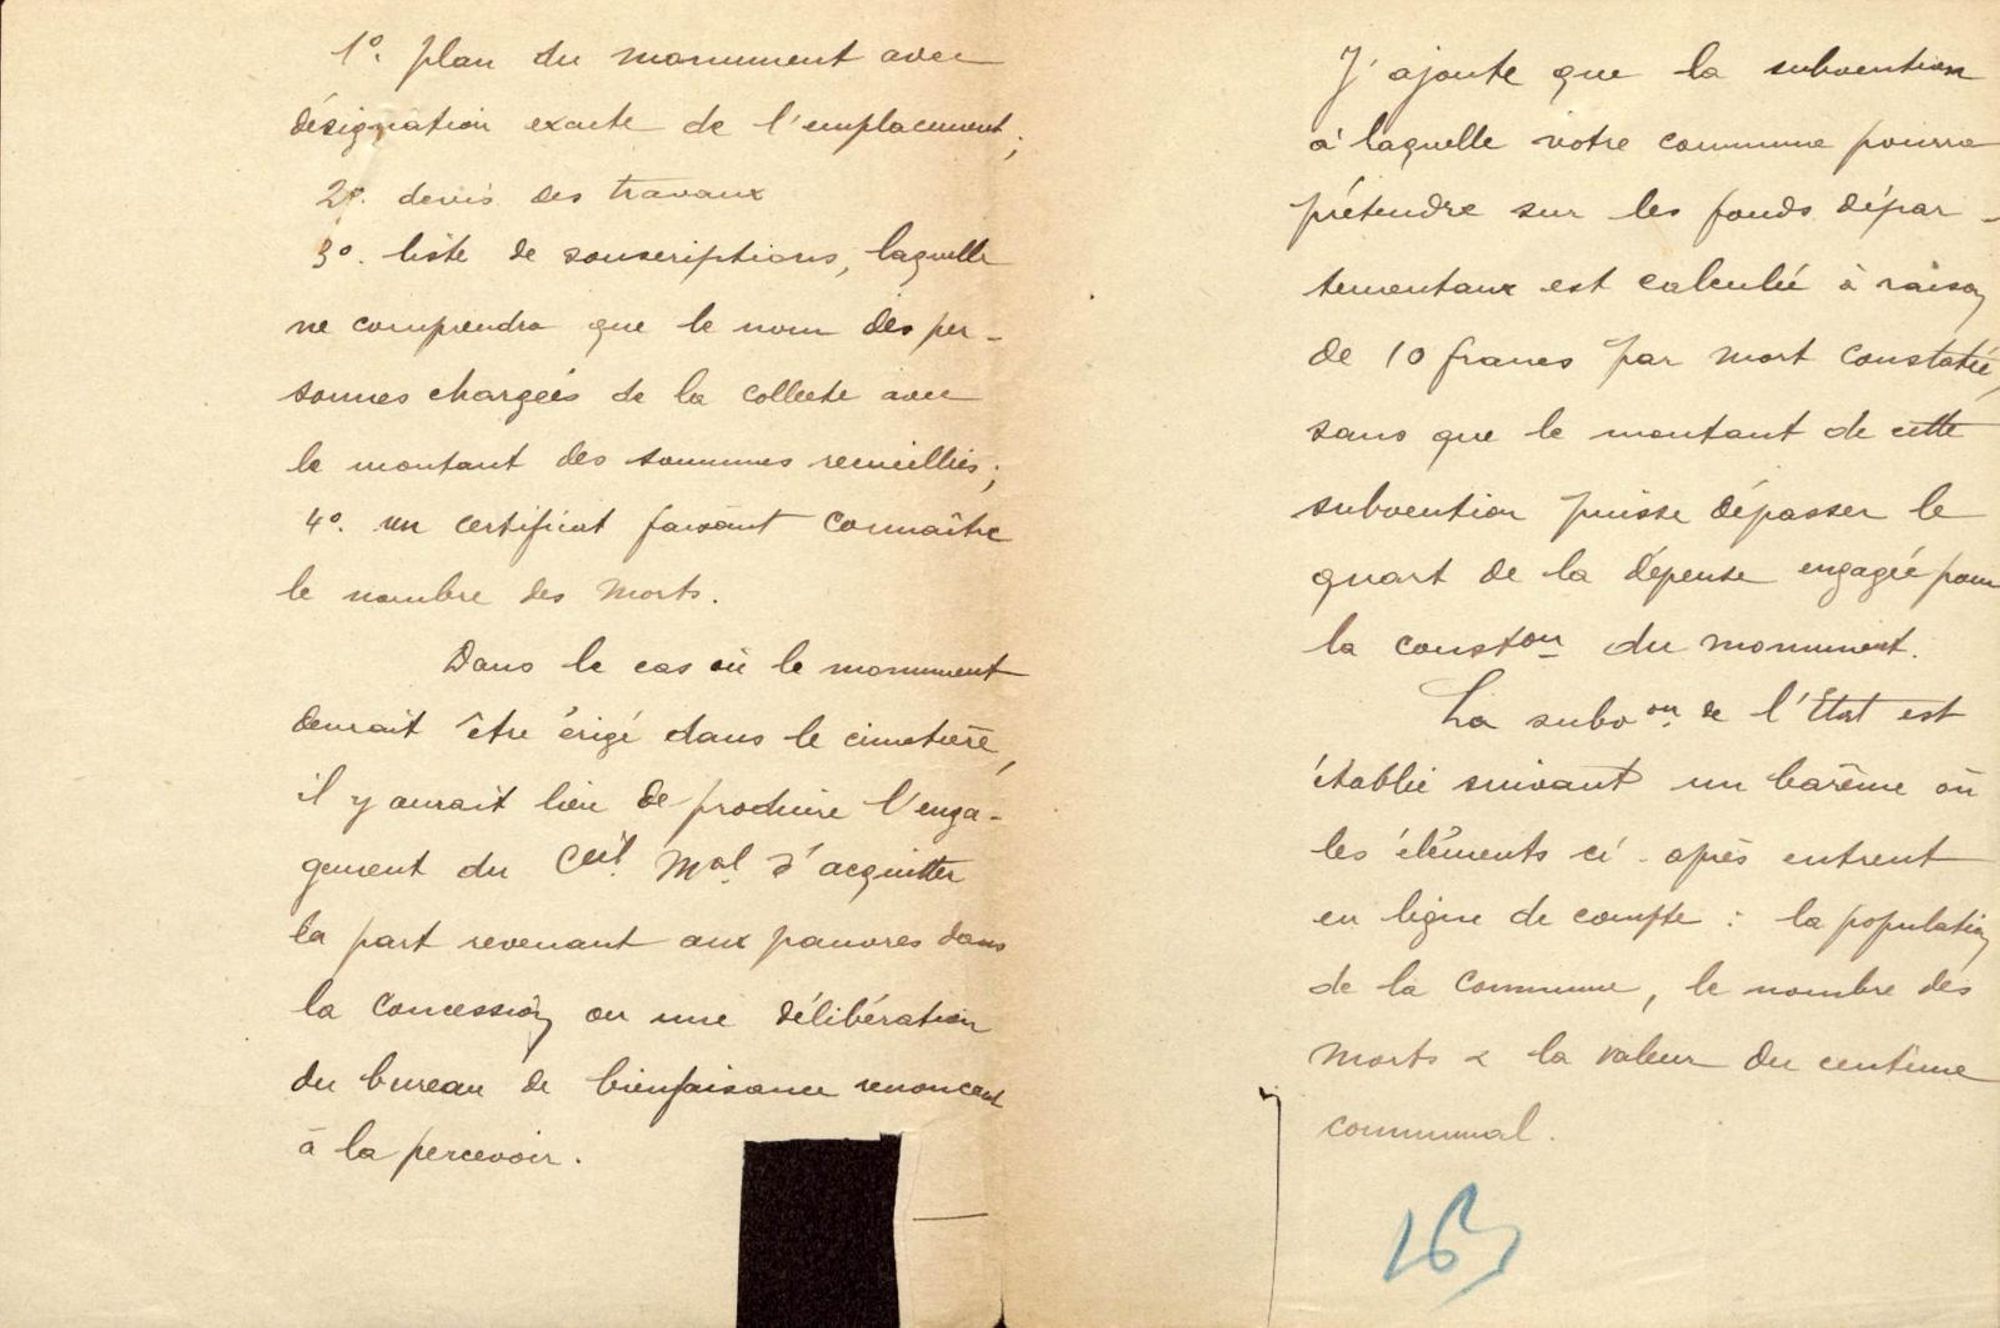 1°. plan du monument avec
désignation exacte de l'emplacement;
2°. devis des travaux
3°. liste de souscriptions, laquelle
ne comprendra que le nom des per-
sonnes chargées de la collecte avec
le montant des sommes recueillies;
4°. un certificat faisant connaître
le nombre des morts.
Dans le cas où le monument
devrait être érigé dans le cimetière,
il y aurait lieu de produire l'enga-
gement du Ceil Mal d'acquitter
la part revenant aux pauvres dans
la concession ou une délibération
du bureau de bienfaisance renonçant
à la percevoir.
J'ajoute que la subvention
à laquelle votre commune pourra
prétendre sur les fonds dépar-
tementaux est calculée à raison
de 10 francs par mort constatée,
sans que le montant de cette
subvention puisse dépasser le
quart de la dépense engagée pour
la conston du monument.
La subvon de l'Etat est
établie suivant un barême où
les éléments ci-après entrent
en ligne de compte : la population
de la commune, le nombre des
morts & la valeur du centime
communal.